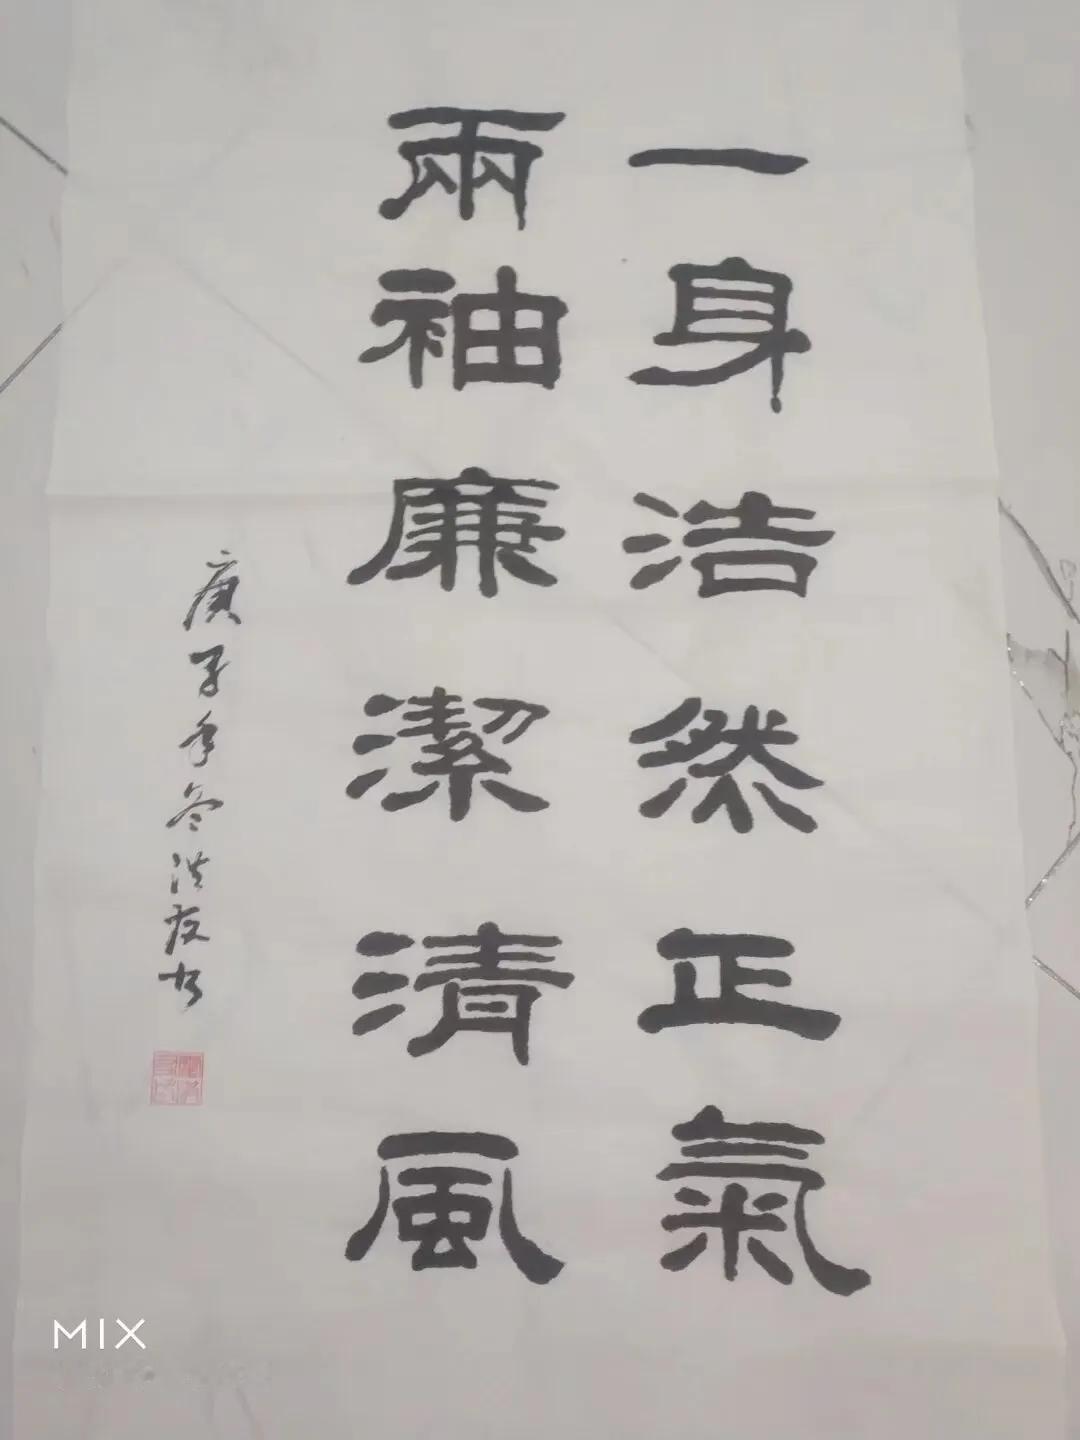 一身浩然正氣
兩袖廉潔清風
庚子年冬洪友书
MIX